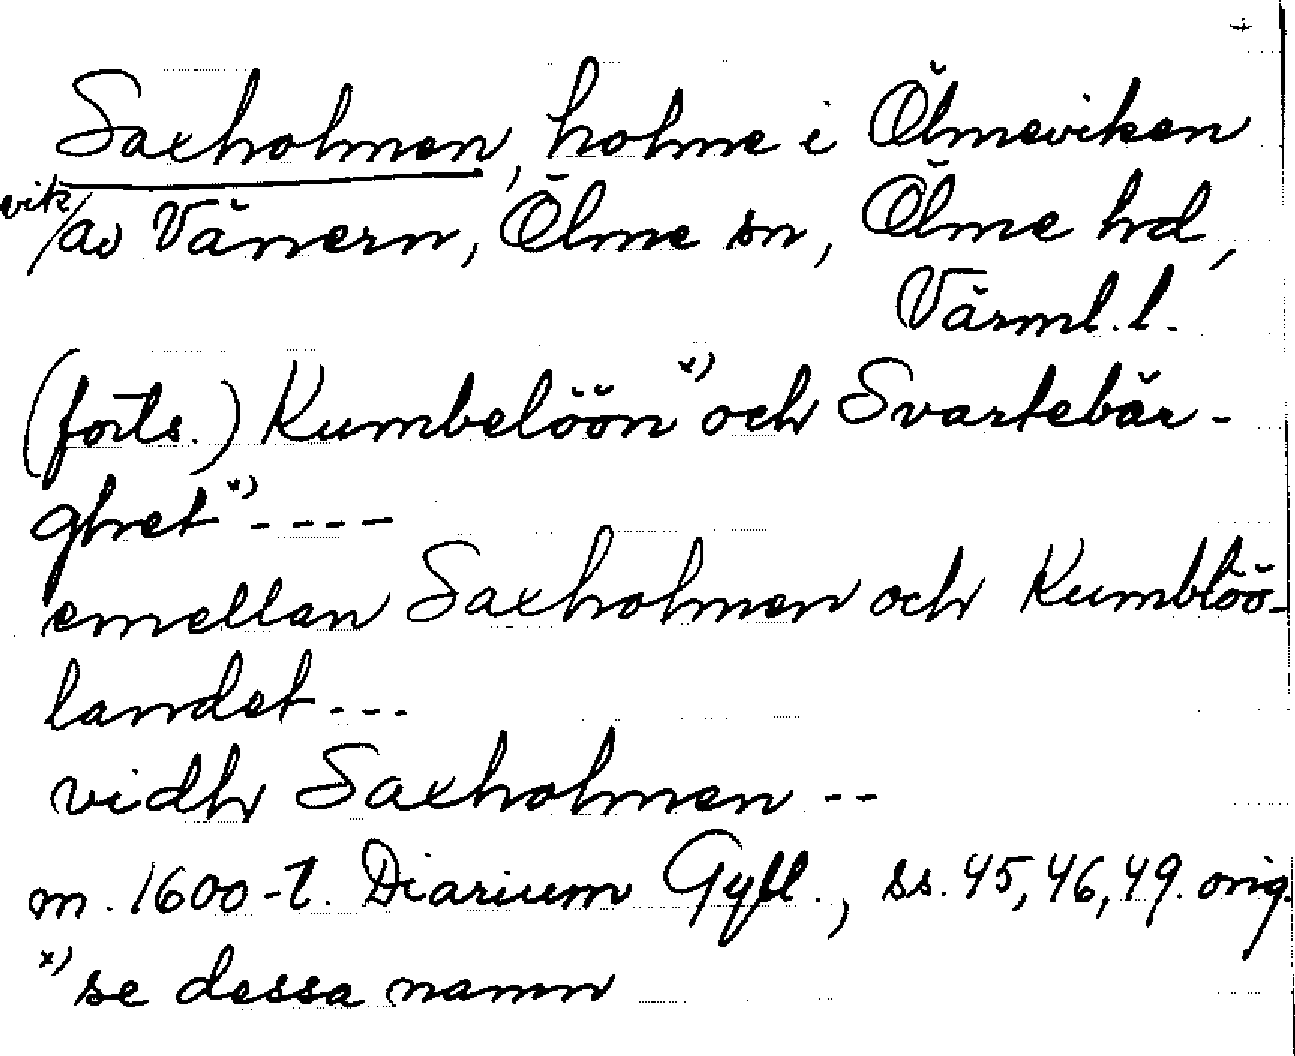 Saxholmen, holme i Ölmeviken
vik/av Vänern, Ölme sn, Ölme hd,
Värml.l.
(forts.) Kumbelöön x) och Svartebär-
ghet x) ----
emellan Saxholmen och Kumblöö-
landet ---
vidh Saxholmen --
m. 1600-t. Diarium Gyll., ss. 45, 46, 49. orig.
x) se dessa namn